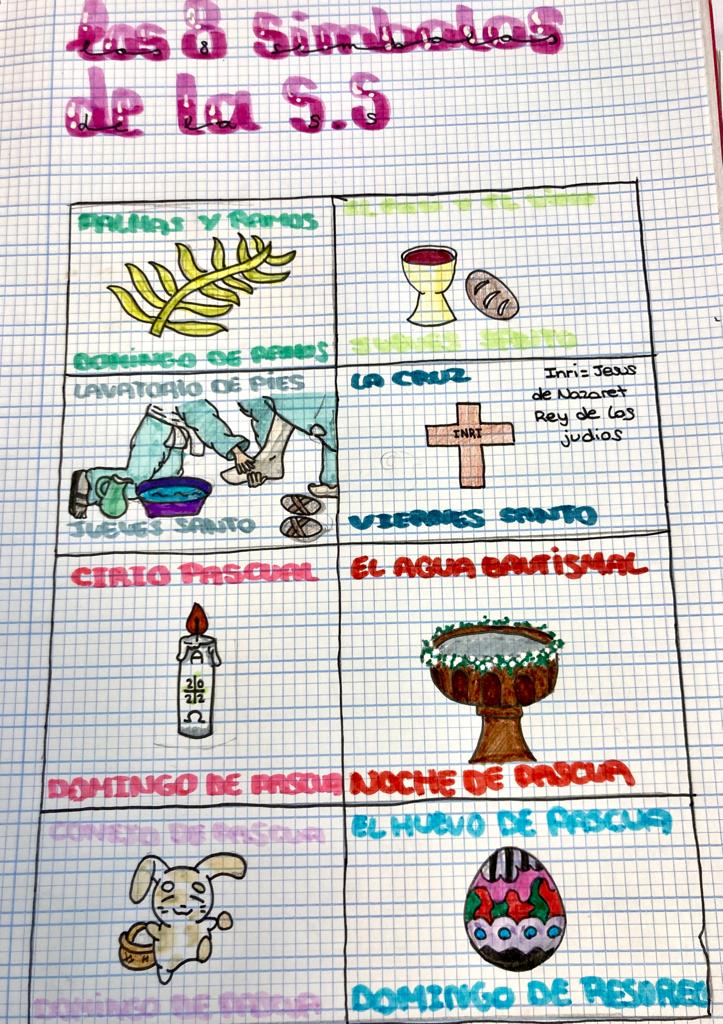 los 8 simbolos
los 8 simbolos
de la S.S
de la s s
PALMAS Y RAMOS
DOMINGO DE RAMOS
EL PAN Y EL VINO
JUEVES SANTO
LAVATORIO DE PIES
JUEVES SANTO
LA CRUZ
Inri=Jesus
de Nazaret
Rey de los
judios
INRI
VIERNES SANTO
CIRIO PASCUAL
A
20
22
Ω
DOMINGO DE PASCUA
EL AGUA BAUTISMAL
NOCHE DE PASCUA
CONEJO DE PASCUA
DOMINGO DE PASCUA
EL HUEVO DE PASCUA
DOMINGO DE RESUREC